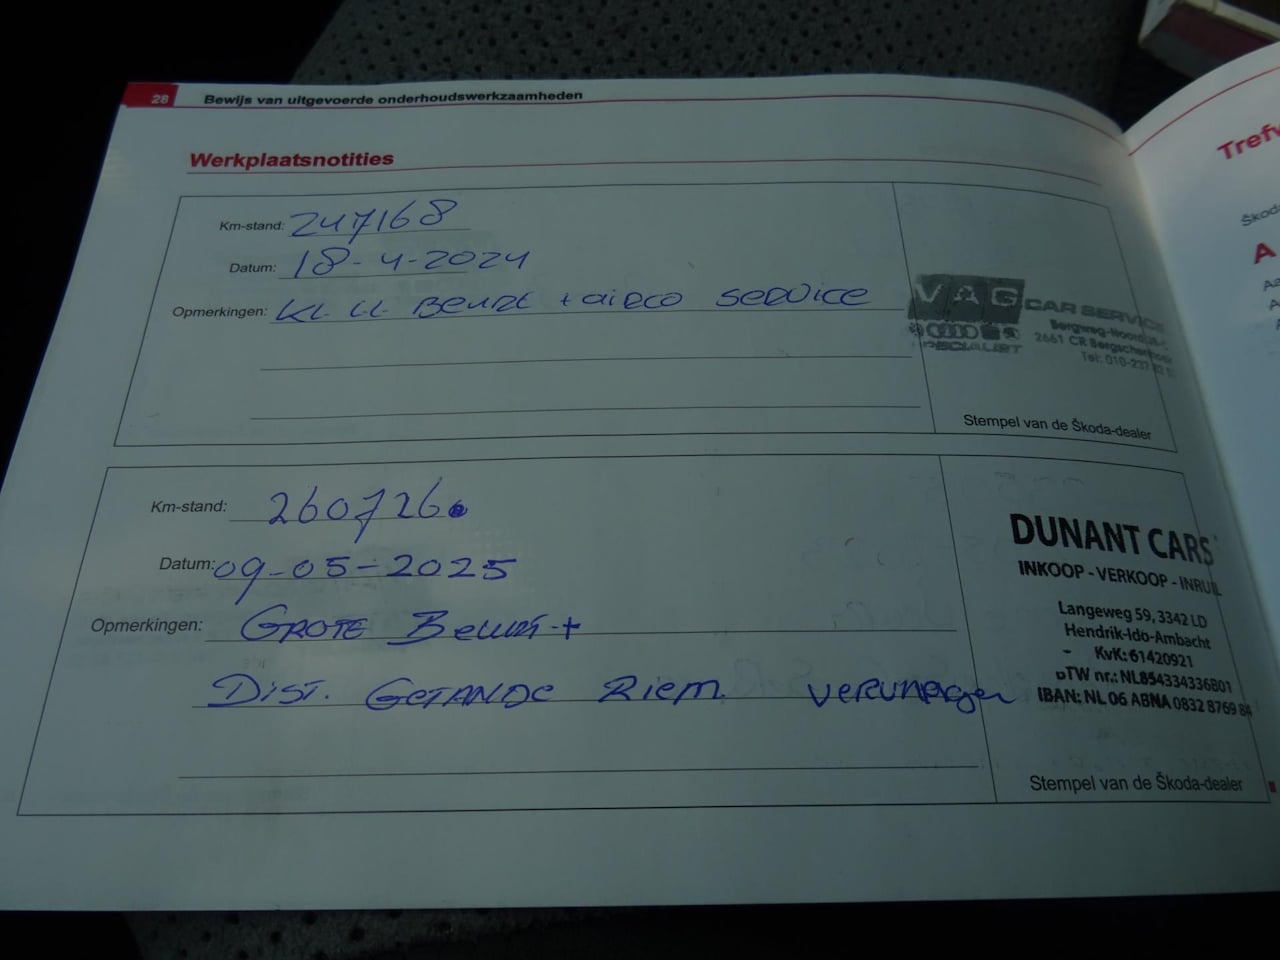 28 Bewijs van uitgevoerde onderhoudswerkzaamheden
Werkplaatsnotities
Km-stand: 247168
Datum: 18-4-2024
Opmerkingen: KL. Beurt + airco service
VAG CAR SERVICE
SPECIALIST
2661 CR
Tel: 010-237
Stempel van de Škoda-dealer
Km-stand: 260726
Datum: 09-05-2025
Opmerkingen: GROTE Beurt +
DIST. GETANDE Riem. VERVANGEN
DUNANT CARS
INKOOP - VERKOOP - INRUIL
Langeweg 59, 3342 LD
Hendrik-Ido-Ambacht
KvK: 61420921
BTW nr.: NL854334336B01
IBAN: NL 06 ABNA 0832 8769 84
Stempel van de Škoda-dealer
Trefw
Škoda
A